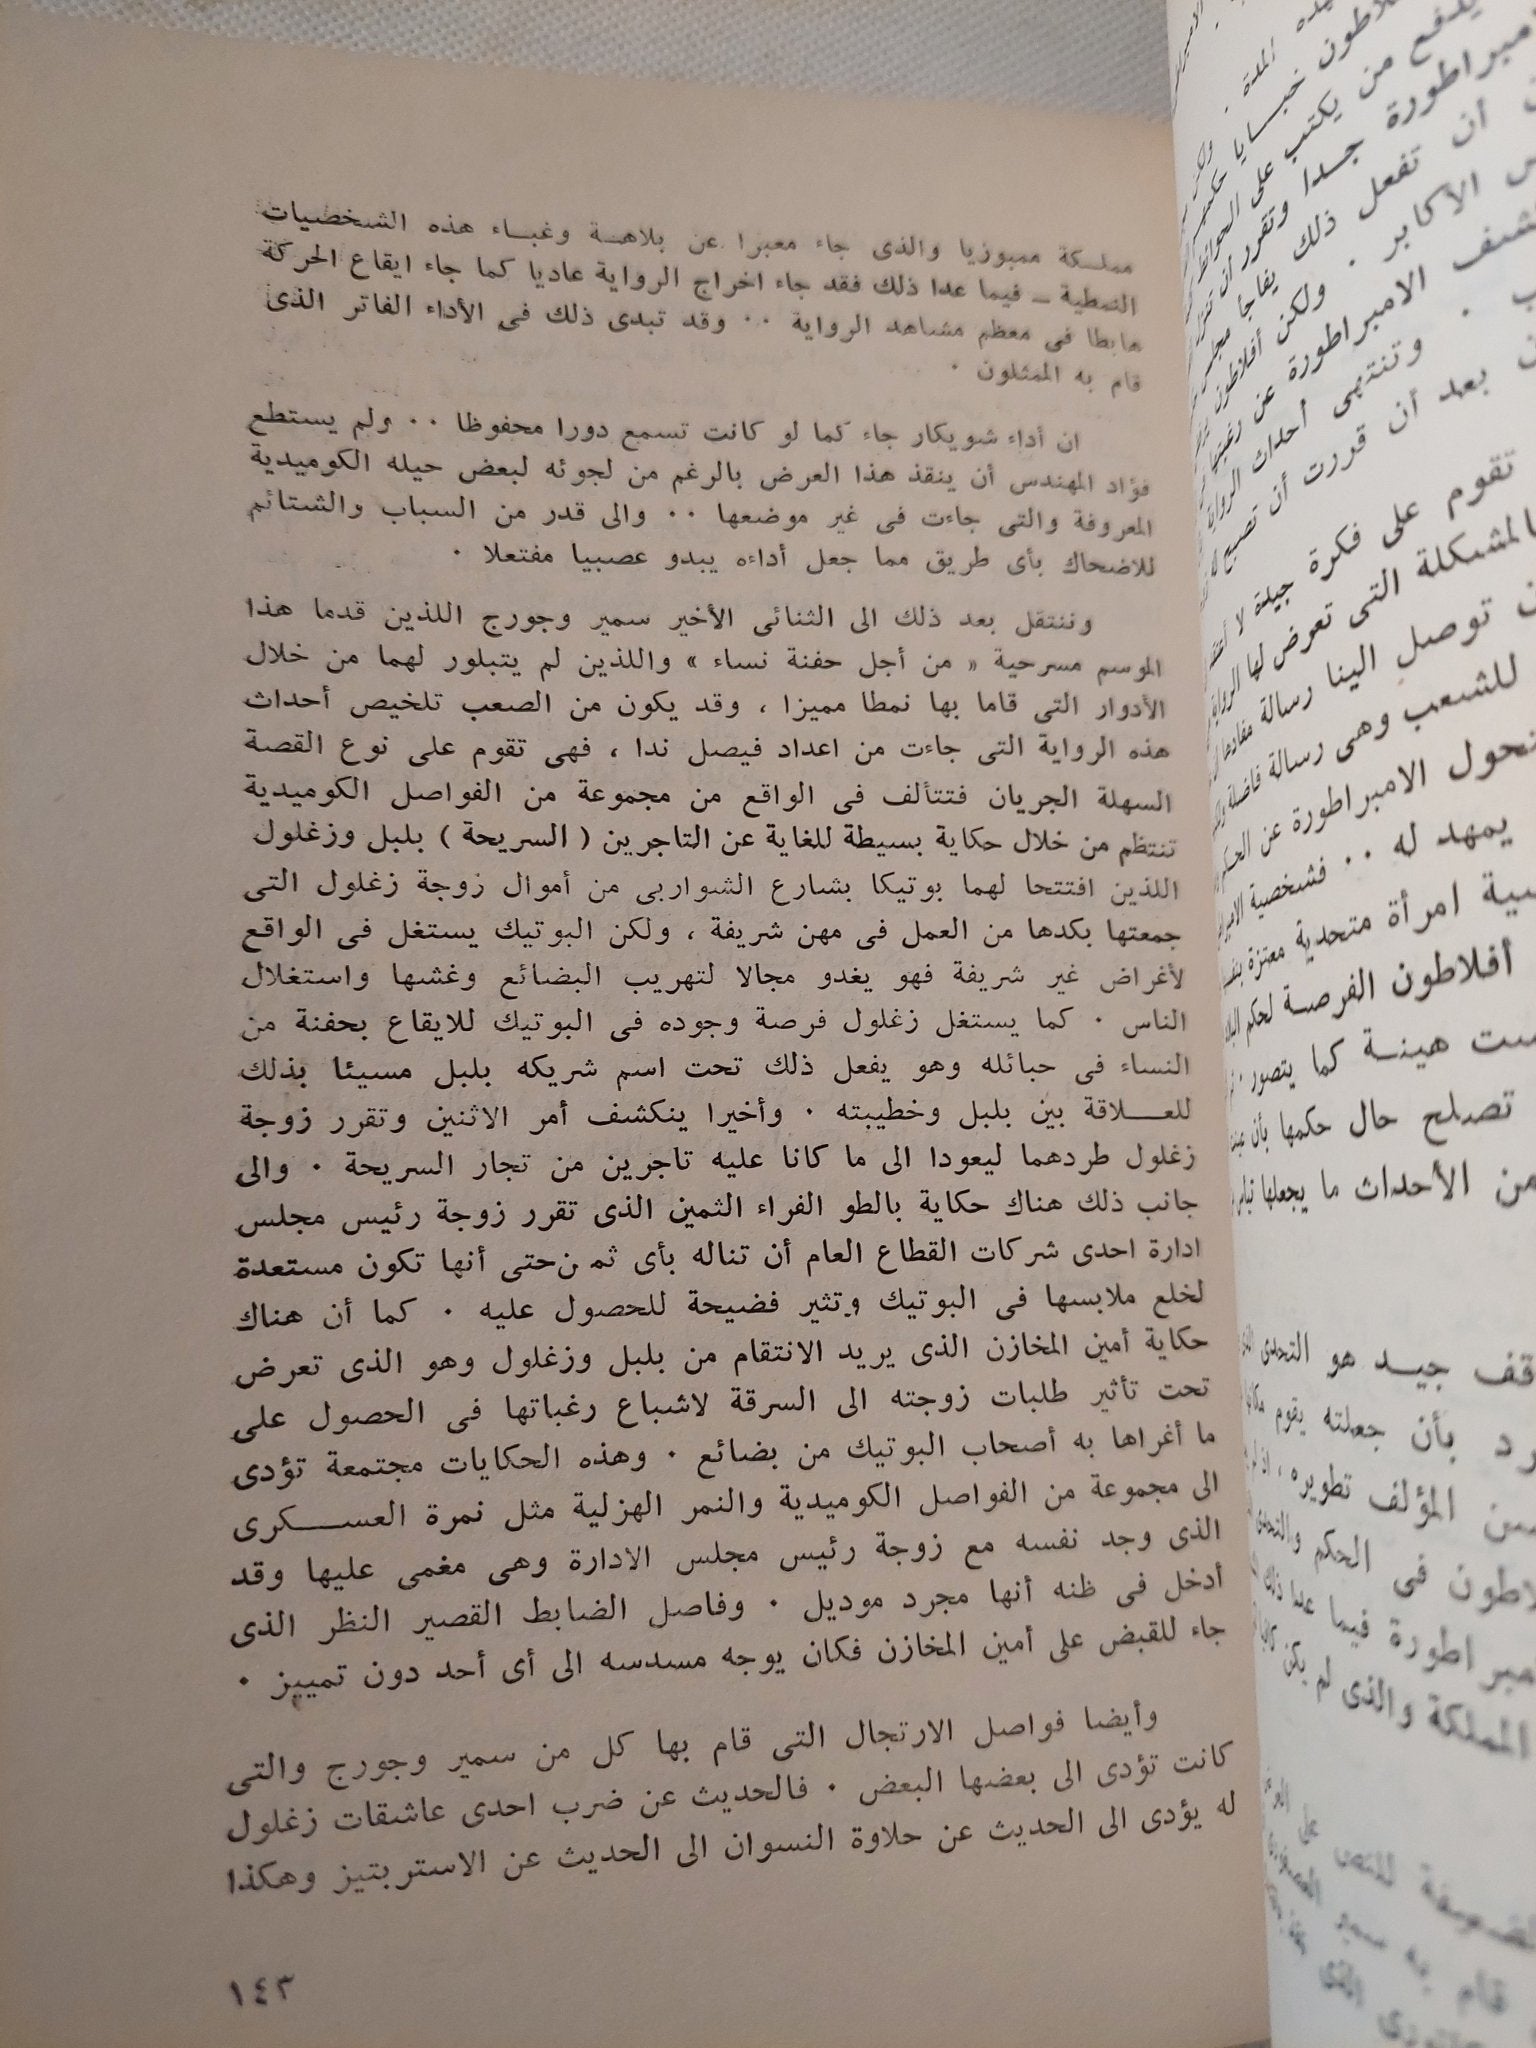 مملـكة ممبوزيا والذى جاء معبرا عن بلاهـة وغبـاء هذه الشخصيات
النمطية ــ فيما عدا ذلك فقد جاء اخراج الرواية عاديا كما جاء ايقاع الحركة
هابطا فى معظم مشاهد الرواية ٠٠ وقد تبدى ذلك فى الأداء الفاتر الذى
قام به الممثلون ٠
ان أداء شويكار جاء كما لو كانت تسمع دورا محفوظا ٠٠ ولم يستطع
فؤاد المهندس أن ينقذ هذا العرض بالرغم من لجوئه لبعض حيله الكوميدية
المعروفة والتى جاءت فى غير موضعها ٠٠ والى قدر من السباب والشتائم
للاضحاك بأى طريق مما جعل أداءه يبدو عصبيا مفتعلا ٠
وننتقل بعد ذلك الى الثنائى الأخير سمير وجورج اللذين قدما هذا
الموسم مسرحية « من أجل حفنة نساء » واللذين لم يتبلور لهما من خلال
الأدوار التى قاما بها نمطا مميزا ، وقد يكون من الصعب تلخيص أحداث
هذه الرواية التى جاءت من اعداد فيصل ندا ، فهى تقوم على نوع القصة
السهلة الجريان فتتألف فى الواقع من مجموعة من الفواصل الكوميدية
تنتظم من خلال حكاية بسيطة للغاية عن التاجرين ( السريحة ) بلبل وزغلول
اللذين افتتحا لهما بوتيكا بشارع الشواربى من أموال زوجة زغلول التى
جمعتها بكدها من العمل فى مهن شريفة ، ولكن البوتيك يستغل فى الواقع
لأغراض غير شريفة فهو يغدو مجالا لتهريب البضائع وغشها واستغلال
الناس ٠ كما يستغل زغلول فرصة وجوده فى البوتيك للايقاع بحفنة من
النساء فى حبائله وهو يفعل ذلك تحت اسم شريكه بلبل مسيئا بذلك
للعــلاقة بين بلبل وخطيبته ٠ وأخيرا ينكشف أمر الاثنين وتقرر زوجة
زغلول طردهما ليعودا الى ما كانا عليه تاجرين من تجار السريحة ٠ والى
جانب ذلك هناك حكاية بالطو الفراء الثمين الذى تقرر زوجة رئيس مجلس
ادارة احدى شركات القطاع العام أن تناله بأى ثمن حتى أنها تكون مستعدة
لخلع ملابسها فى البوتيك وتثير فضيحة للحصول عليه ٠ كما أن هناك
حكاية أمين المخازن الذى يريد الانتقام من بلبل وزغلول وهو الذى تعرض
تحت تأثير طلبات زوجته الى السرقة لاشباع رغباتها فى الحصول على
ما أغراها به أصحاب البوتيك من بضائع ٠ وهذه الحكايات مجتمعة تؤدى
الى مجموعة من الفواصل الكوميدية والنمر الهزلية مثل نمرة العســكرى
الذى وجد نفسه مع زوجة رئيس مجلس الادارة وهى مغمى عليها وقد
أدخل فى ظنه أنها مجرد موديل ٠ وفاصل الضابط القصير النظر الذى
جاء للقبض على أمين المخازن فكان يوجه مسدسه الى أى أحد دون تمييز ٠
وأيضا فواصل الارتجال التى قام بها كل من سمير وجورج والتى
كانت تؤدى الى بعضها البعض ٠ فالحديث عن ضرب احدى عاشقات زغلول
له يؤدى الى الحديث عن حلاوة النسوان الى الحديث عن الاستربتيز وهكذا
١٤٣
يدفع من يكتب على
امبراطورة جـدا وتقرر أن
أن تفعل ذلك يفاجأ مجلس
الأكابر ٠ ولكن أفلاطون
الامبراطورة عن
وتنتهى أحداث الرواية
بعد أن قررت أن تصبح
تقوم على فكرة جيدة لا
بالمشكلة التى تعرض لها
توصل الينا رسالة
للشعب وهى رسالة فاضلة
الامبراطورة عن الحكم
يمهد له ٠٠ فشخصية
امرأة متحدية معتزة
أفلاطون الفرصة لحكم
هينـة كما يتصور
تصلح حال حكمها بأن
من الأحداث ما يجعلها
جيـد هو التحدى
بأن جعلته يقوم
المؤلف تطويره
فى الحكم
فيما عدا ذلك
المملكة والذى لم يكن